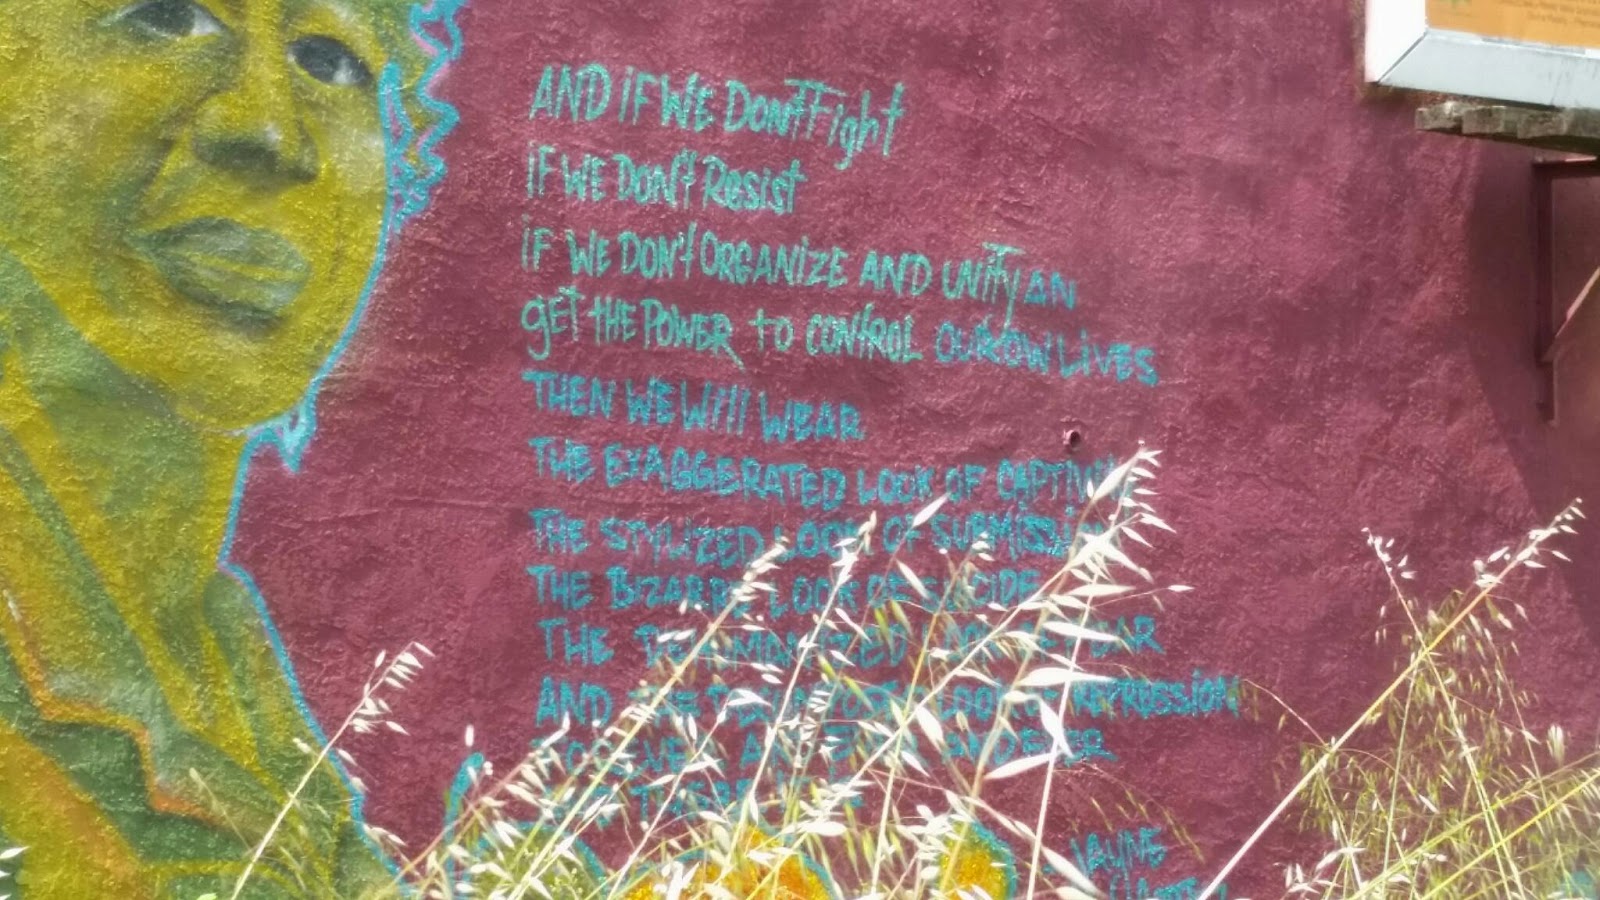 AND iF WE DON'T Fight
iF WE DON'T Resist
iF WE DON'T ORGANIZE AND UNITY AN
get THE POWER to CONTROL OUR OW LIVES
THEN WE Will WEAR
THE EXAGGERATED LOOK OF CAPTIVITY
THE STYLIZED LOOK OF SUBMISSION
THE BIZARRE LOOK OF SUICIDE
THE DEHUMANIZED LOOK OF FEAR
AND THE LOOK OF REPRESSION
FOREVER AND EVER AND EVER
JAYNE